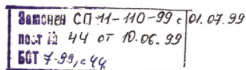 Заменен СП 11-110-99 с 01.07.99
пост № 44 от 10.06.99
БСТ 7-99, с 44